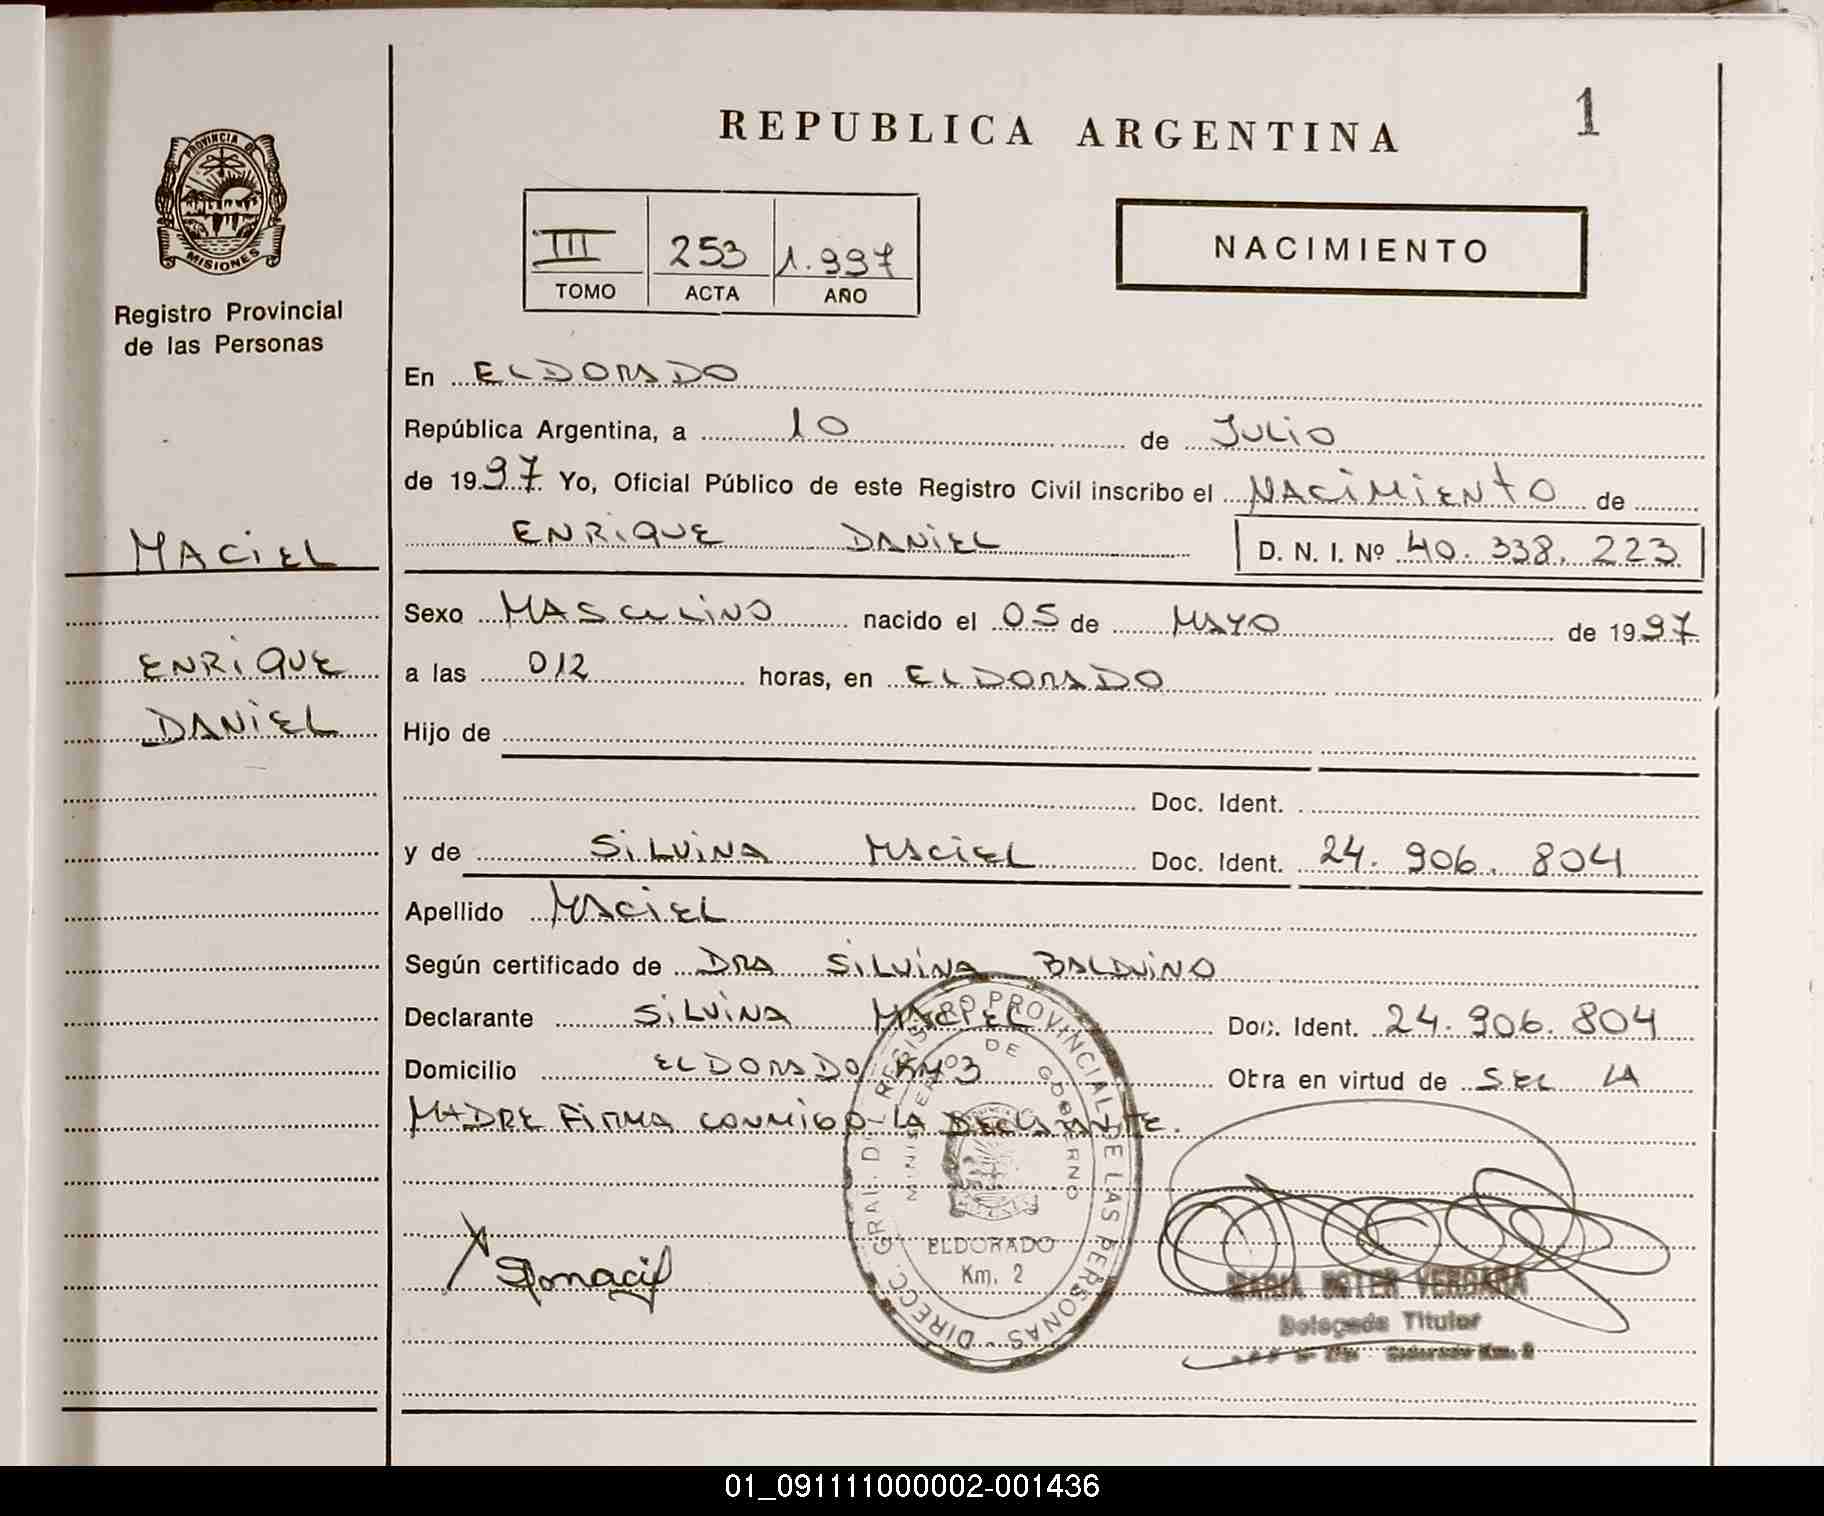 REPUBLICA ARGENTINA
1
PROVINCIA DE
MISIONES
Registro Provincial
de las Personas
III 253 1.997
TOMO ACTA AÑO
NACIMIENTO
En ELDORADO
República Argentina, a 10 de JULIO
de 1997 Yo, Oficial Público de este Registro Civil inscribo el NACIMIENTO de
ENRIQUE DANIEL D. N. I. Nº 40.338.223
MACIEL
ENRIQUE
DANIEL
Sexo MASCULINO nacido el 05 de MAYO de 1997
a las 012 horas, en ELDORADO
Hijo de
Doc. Ident.
y de SILVINA MACIEL Doc. Ident. 24.906.804
Apellido MACIEL
Según certificado de DRA SILVINA BALDUINO
Declarante SILVINA MACIEL Doc. Ident. 24.906.804
Domicilio ELDORADO KMº3 Otra en virtud de SER LA
MADRE FIRMA CONMIGO LA DECLARANTE.
DIRECC. GRAL. DEL REGISTRO PROVINCIAL DE LAS PERSONAS
MINISTERIO DE GOBIERNO
ELDORADO
Km. 2
MARIA ESTER VERGARA
Delegada Titular
Eldorado Km. 2
01_091111000002-001436